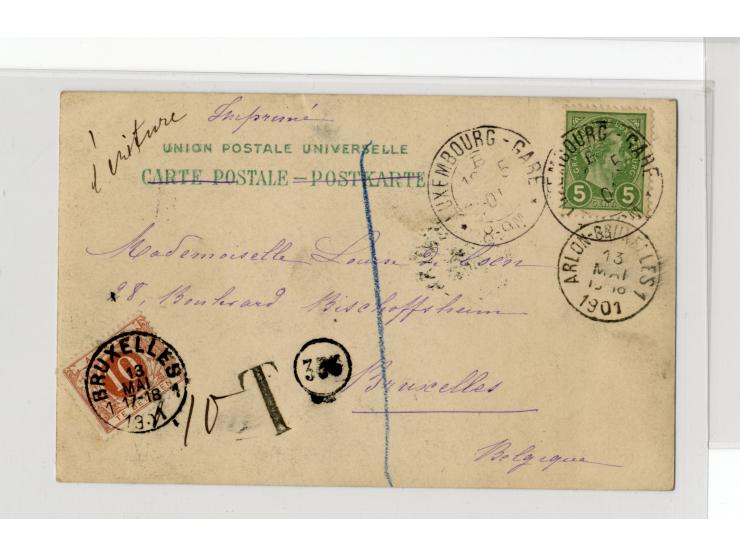 Imprimé
d'écriture
UNION POSTALE UNIVERSELLE
CARTE POSTALE – POSTKARTE
LUXEMBOURG - GARE
8-9M
LUXEMBOURG - GARE
5 5
ARLON-BRUXELLES 1
13
MAI
1901
Mademoiselle
28, Boulevard Bischoffsheim
Bruxelles
Belgique
BRUXELLES 1
13
MAI
17-18
1901
10
T
356